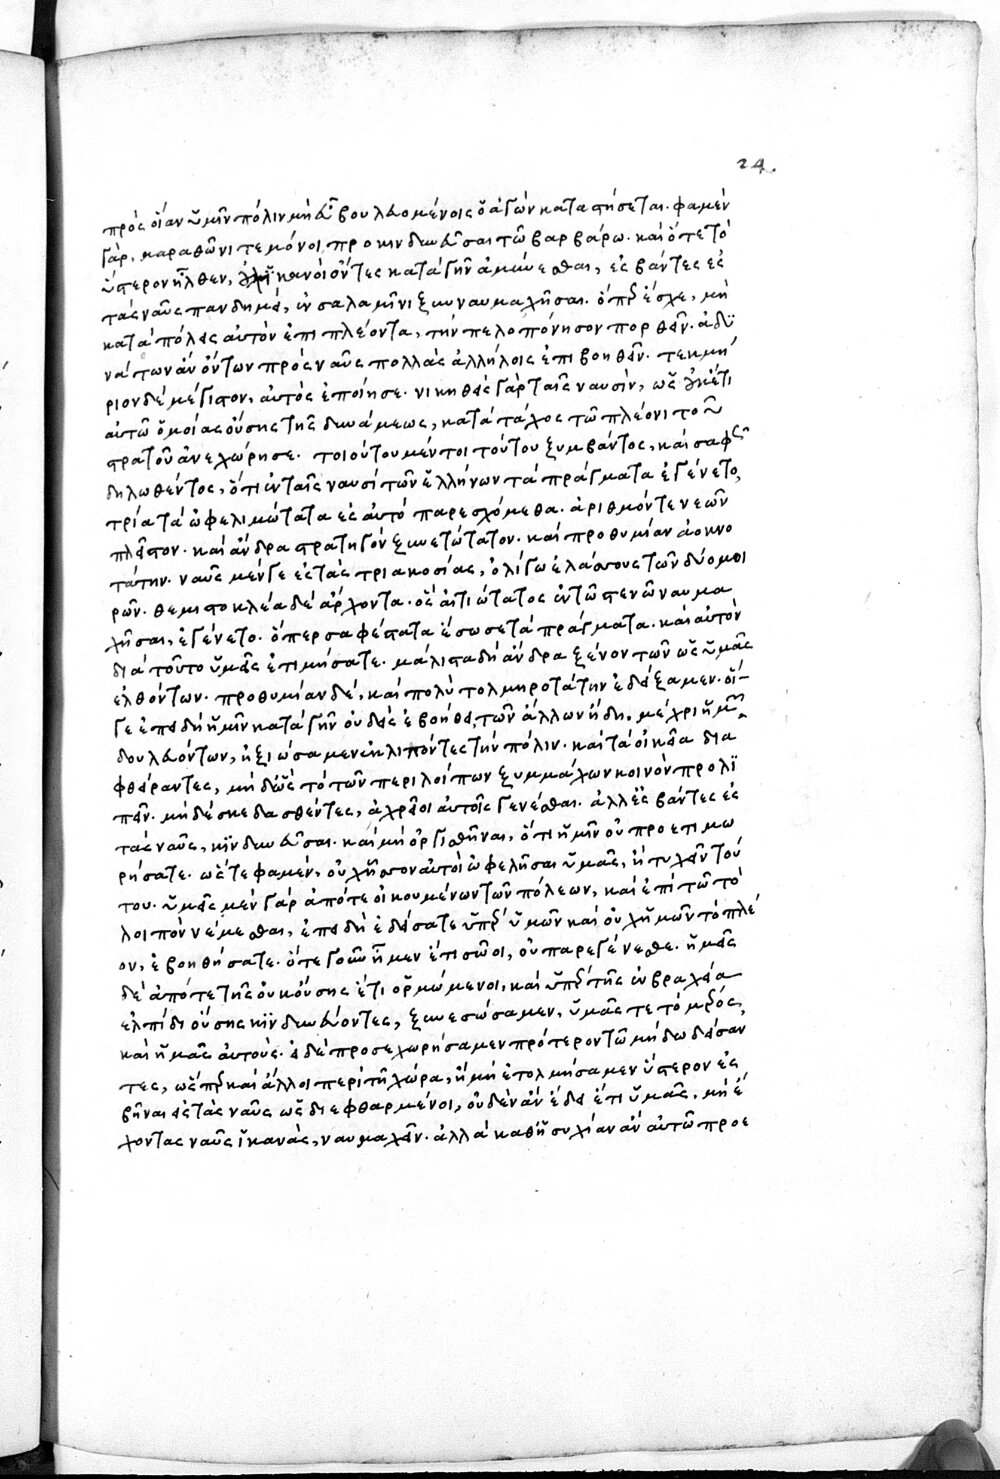 24.
πρὸς οἵαν ὑμῖν πόλιν μὴ εὖ βουλευομένοις ὁ ἀγὼν καταστήσεται. φαμὲν
γὰρ, μαραθῶνι τε μόνοι προκινδυνεῦσαι τῶ βαρβάρω. καὶ ὅτε τὸ
ὕστερον ἦλθεν, οὐχ ἱκανοὶ ὄντες κατὰ γῆν ἀμύνεσθαι, ἐσβάντες ἐς
τὰς ναῦς πανδημεὶ, ἐν σαλαμῖνι ξυνναυμαχῆσαι. ὅπερ ἔσχε, μὴ
κατὰ πόλεις αὐτὸν ἐπιπλέοντα, τὴν πελοπόννησον πορθεῖν. ἀδυ
νάτων ἂν ὄντων πρὸς ναῦς πολλὰς ἀλλήλοις ἐπιβοηθεῖν. τεκμή
ριον δὲ μέγιστον, αὐτὸς ἐποίησε. νικηθεὶς γὰρ ταῖς ναυσὶν, ὡς οὐκέτι
αὐτῶ ὁμοίας οὔσης τῆς δυνάμεως, κατὰ τάχος τῶ πλέονι τοῦ
στρατοῦ ἀνεχώρησε. τοιούτου μέντοι τούτου ξυμβάντος, καὶ σαφῶς
δηλωθέντος, ὅτι ἐν ταῖς ναυσὶ τῶν ἑλλήνων τὰ πράγματα ἐγένετο,
τρία τὰ ὠφελιμώτατα ἐς αὐτὸ παρεσχόμεθα. ἀριθμόν τε νεῶν
πλεῖστον. καὶ ἄνδρα στρατηγὸν ξυνετώτατον. καὶ προθυμίαν ἀοκνο
τάτην. ναῦς μέν γε ἐς τὰς τριακοσίας, ὀλίγω ἐλάσσους τῶν δύο μοι
ρῶν. θεμιστοκλέα δὲ ἄρχοντα. ὃς αἰτιώτατος ἐν τῶ στενῶ ναυμα
χῆσαι, ἐγένετο. ὅπερ σαφέστατα ἔσωσε τὰ πράγματα. καὶ αὐτὸν
διὰ τοῦτο ὑμεῖς ἐτιμήσατε. μάλιστα δὴ ἄνδρα ξένον τῶν ὡς ὑμᾶς
ἐλθόντων. προθυμίαν δὲ, καὶ πολὺ τολμηροτάτην ἐδείξαμεν. οἵ
γε ἐπειδὴ ἡμῖν κατὰ γῆν οὐδεὶς ἐβοήθει, τῶν ἄλλων ἤδη, μέχρι ἡμῶν
δουλευόντων, ἠξιώσαμεν ἐκλιπόντες τὴν πόλιν. καὶ τὰ οἰκεῖα δια
φθείραντες, μὴ δ' ὡς τὸ τῶν περιλοίπων ξυμμάχων κοινὸν προλι
πεῖν. μὴ δὲ σκεδασθέντες, ἀχρεῖοι αὐτοῖς γενέσθαι. ἀλλ' ἐσβάντες ἐς
τὰς ναῦς, κινδυνεῦσαι. καὶ μὴ ὀργισθῆναι, ὅτι ἡμῖν οὐ προετιμω
ρήσατε. ὥστε φαμὲν, οὐχ ἧσσον αὐτοὶ ὠφελῆσαι ὑμᾶς, ἢ τυχεῖν τού
του. ὑμεῖς μὲν γὰρ ἀπό τε οἰκουμένων τῶν πόλεων, καὶ ἐπὶ τῶ τὸ
λοιπὸν νέμεσθαι, ἐπειδὴ ἐδείσατε ὑπὲρ ὑμῶν καὶ οὐχ ἡμῶν τὸ πλέ
ον, ἐβοηθήσατε. ὅτε γοῦν ἦμεν ἔτι σῶοι, οὐ παρεγένεσθε. ἡμεῖς
δὲ ἀπό τε τῆς οὐκ οὔσης ἔτι ὁρμώμενοι, καὶ ὑπὲρ τῆς ἐν βραχεία
ἐλπίδι οὔσης κινδυνεύοντες, ξυνεσώσαμεν, ὑμᾶς τε τὸ μέρος,
καὶ ἡμᾶς αὐτούς. εἰ δὲ προσεχωρήσαμεν πρότερον τῶ μήδω δείσαν
τες, ὥσπερ καὶ ἄλλοι περὶ τῆ χώρα, ἢ μὴ ἐτολμήσαμεν ὕστερον ἐσ
βῆναι ἐς τὰς ναῦς ὡς διεφθαρμένοι, οὐδὲν ἂν ἔδει ἔτι ὑμᾶς, μὴ ἔ
χοντας ναῦς ἱκανὰς, ναυμαχεῖν. ἀλλὰ καθ' ἡσυχίαν ἂν αὐτῶ προε